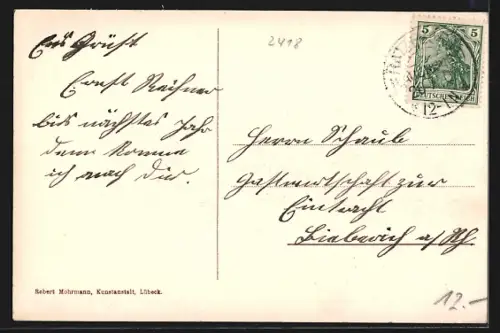 Es Grüßt
Ernst Reihner
bis nächstes Jahr
dann komme
ich nach Dir.
2418
5 5
DEUTSCHES REICH
12-
Herrn Schaub
Gastwirtschaft zur
Eintracht
Bieberich a/Rh.
Sebert Mohrmann, Konstanstalt, Lübeck.
12.-